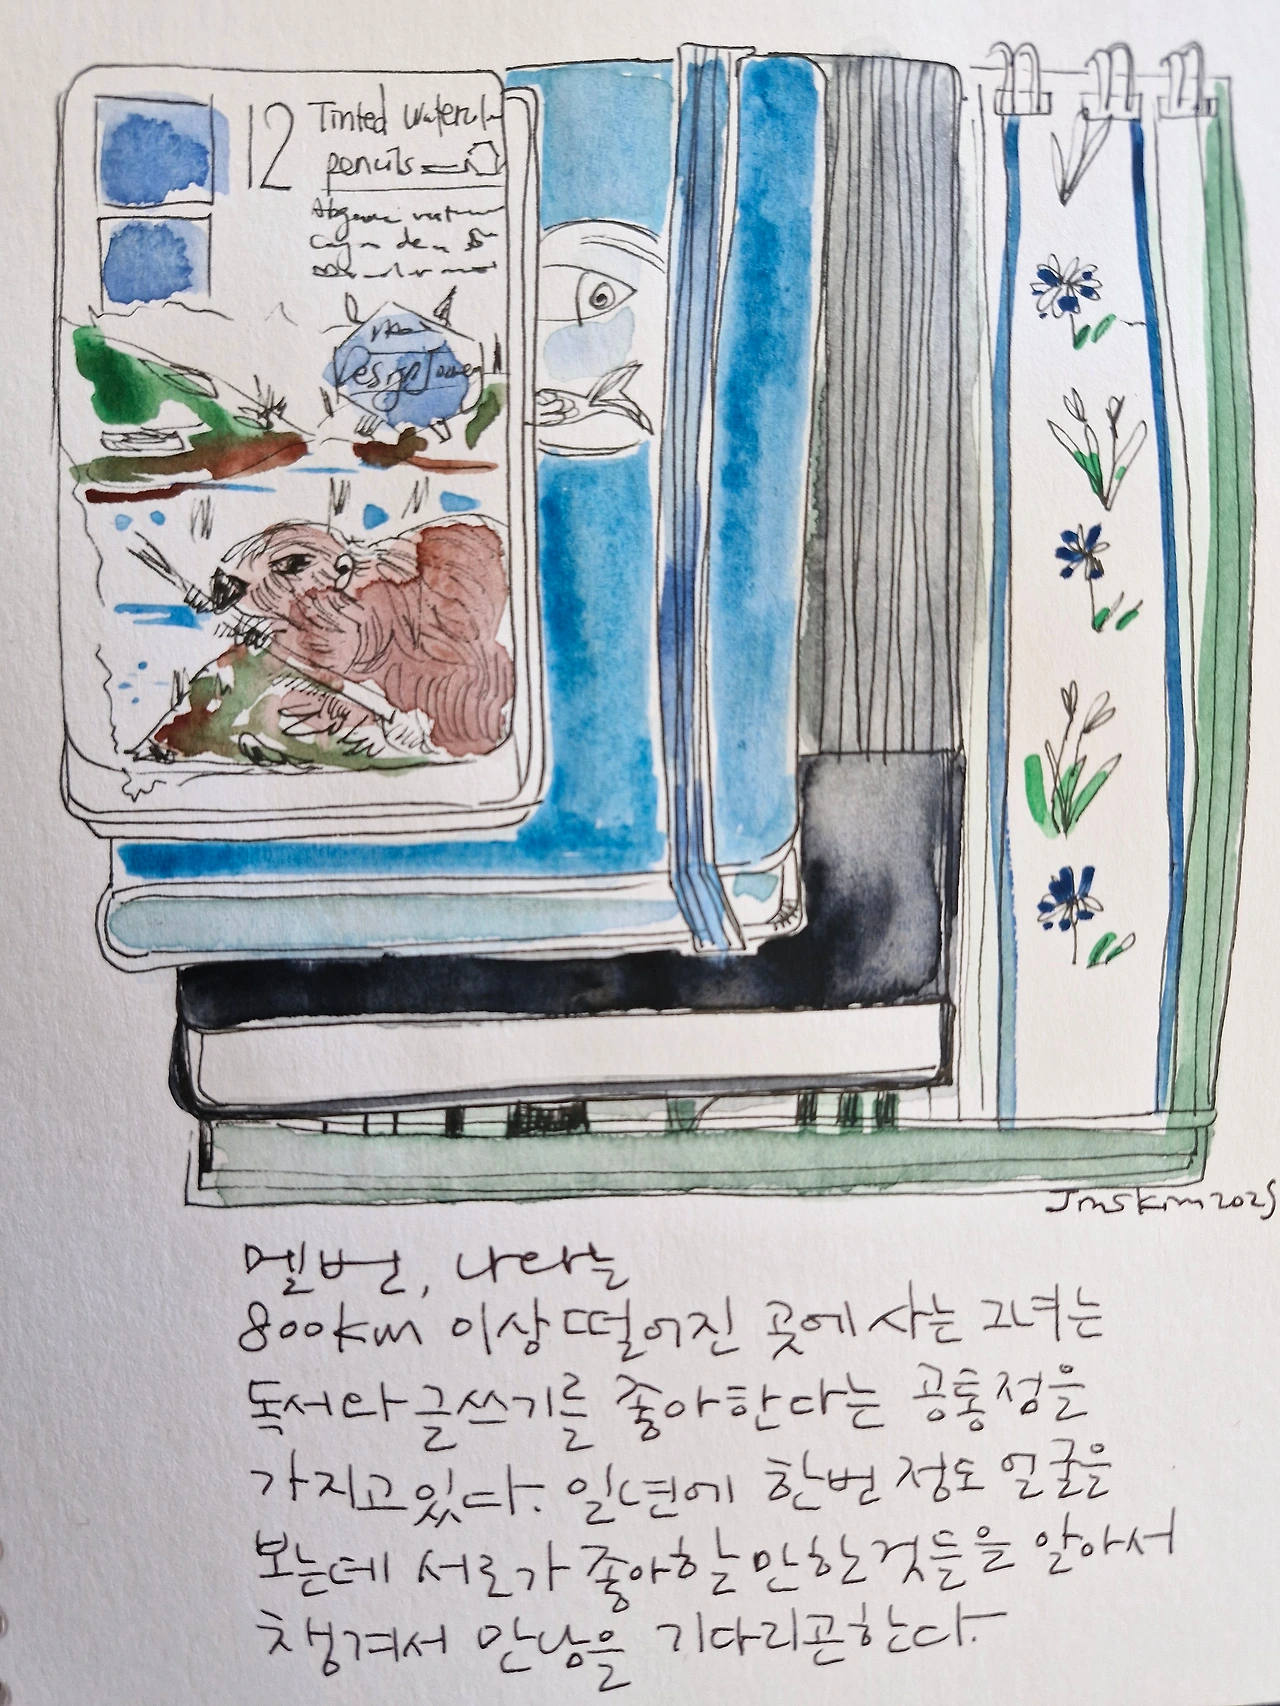 12
Tinted Watercolor
pencils
Design Journey
Jinskim 2025
멜번, 나라는
800km 이상 떨어진 곳에 사는 그녀는
독서와 글쓰기를 좋아한다는 공통점을
가지고 있다. 일년에 한번 정도 얼굴을
보는데 서로가 좋아할 만한 것들을 알아서
챙겨서 만남을 기다리곤 한다.